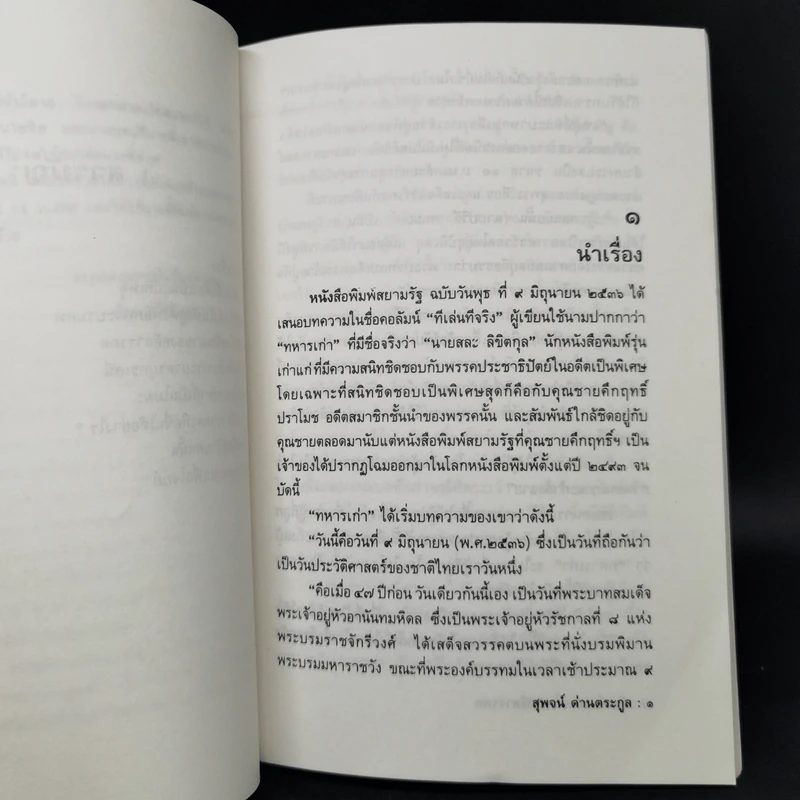 ๑
นำเรื่อง
หนังสือพิมพ์สยามรัฐ ฉบับวันพุธ ที่ ๙ มิถุนายน ๒๕๓๖ ได้
เสนอบทความในชื่อคอลัมน์ “ทีเล่นทีจริง” ผู้เขียนใช้นามปากกาว่า
“ทหารเก่า” ที่มีชื่อจริงว่า “นายสละ ลิขิตกุล” นักหนังสือพิมพ์รุ่น
เก่าแก่ที่มีความสนิทชิดชอบกับพรรคประชาธิปัตย์ในอดีตเป็นพิเศษ
โดยเฉพาะที่สนิทชิดชอบเป็นพิเศษสุดก็คือกับคุณชายคึกฤทธิ์
ปราโมช อดีตสมาชิกชั้นนำของพรรคนั้น และสัมพันธ์ใกล้ชิดอยู่กับ
คุณชายตลอดมานับแต่หนังสือพิมพ์สยามรัฐที่คุณชายคึกฤทธิ์ฯ เป็น
เจ้าของได้ปรากฏโฉมออกมาในโลกหนังสือพิมพ์ตั้งแต่ปี ๒๔๙๓ จน
บัดนี้
“ทหารเก่า” ได้เริ่มบทความของเขาว่าดังนี้
“วันนี้คือวันที่ ๙ มิถุนายน (พ.ศ.๒๕๓๖) ซึ่งเป็นวันที่ถือกันว่า
เป็นวันประวัติศาสตร์ของชาติไทยเราวันหนึ่ง
“คือเมื่อ ๔๗ ปีก่อน วันเดียวกันนี้เอง เป็นวันที่พระบาทสมเด็จ
พระเจ้าอยู่หัวอานันทมหิดล ซึ่งเป็นพระเจ้าอยู่หัวรัชกาลที่ ๘ แห่ง
พระบรมราชจักรีวงศ์ ได้เสด็จสวรรคตบนพระที่นั่งบรมพิมาน
พระบรมมหาราชวัง ขณะที่พระองค์บรรทมในเวลาเช้าประมาณ ๙
สุพจน์ ด่านตระกูล : ๑